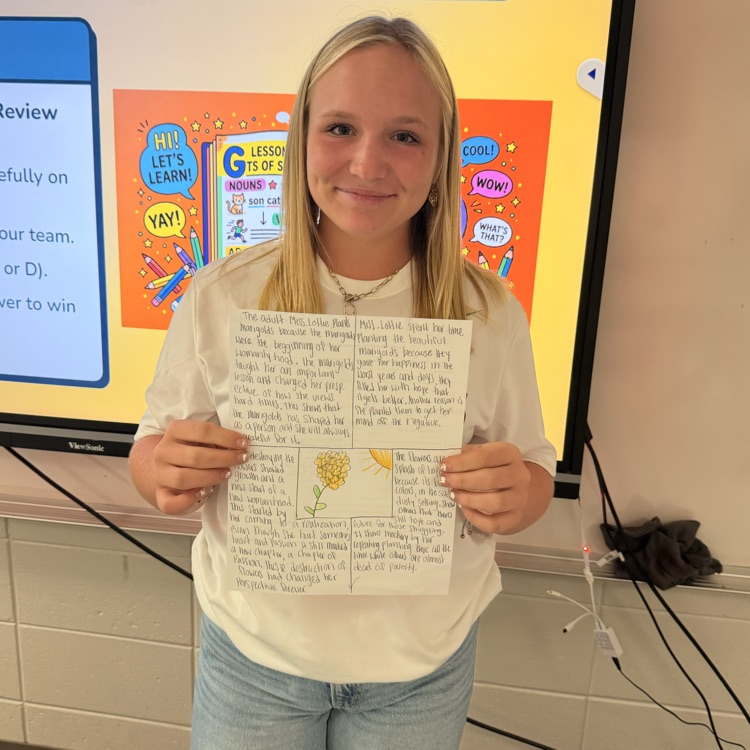 Review
efully on
our team.
or D).
wer to win
HI!
LET'S
LEARN!
YAY!
G LESSON
TS OF S
NOUNS
son cat
COOL!
WOW!
WHAT'S
THAT?
ViewSonic
The adult Miss. Lottie, Plants
Marigolds because the marigolds
were the beggining of her
womanly hood, the marigolds
taught her an important
lesson and changed her presp-
ective of how she views
hard times, this shows that
the marigolds has shaped her
as a person and she will always
grateful for it.
Miss. Lottie spent her time,
Planting the beautiful
marigolds because they
gave her happiness in the
worst years and days, they
filled her with hope that
it gets better, Another reason is
she planted them to get her
mind off the negative.
destroying the
showed
growth and a
new start of a
new womanhood.
This started by
her coming to a realization,
even though she had
heart and Passion it still marked
a new chapter, a chapter of
Passion, the destruction of
flowers had changed her
perspective forever.
the flowers are
splash of hope
because its
colors, in the
dusty setting, show
others that theres
still hope and
future for those struggling.
It shows mostly by her
repeating planting hope all the
time while others are almost
dead of poverty.